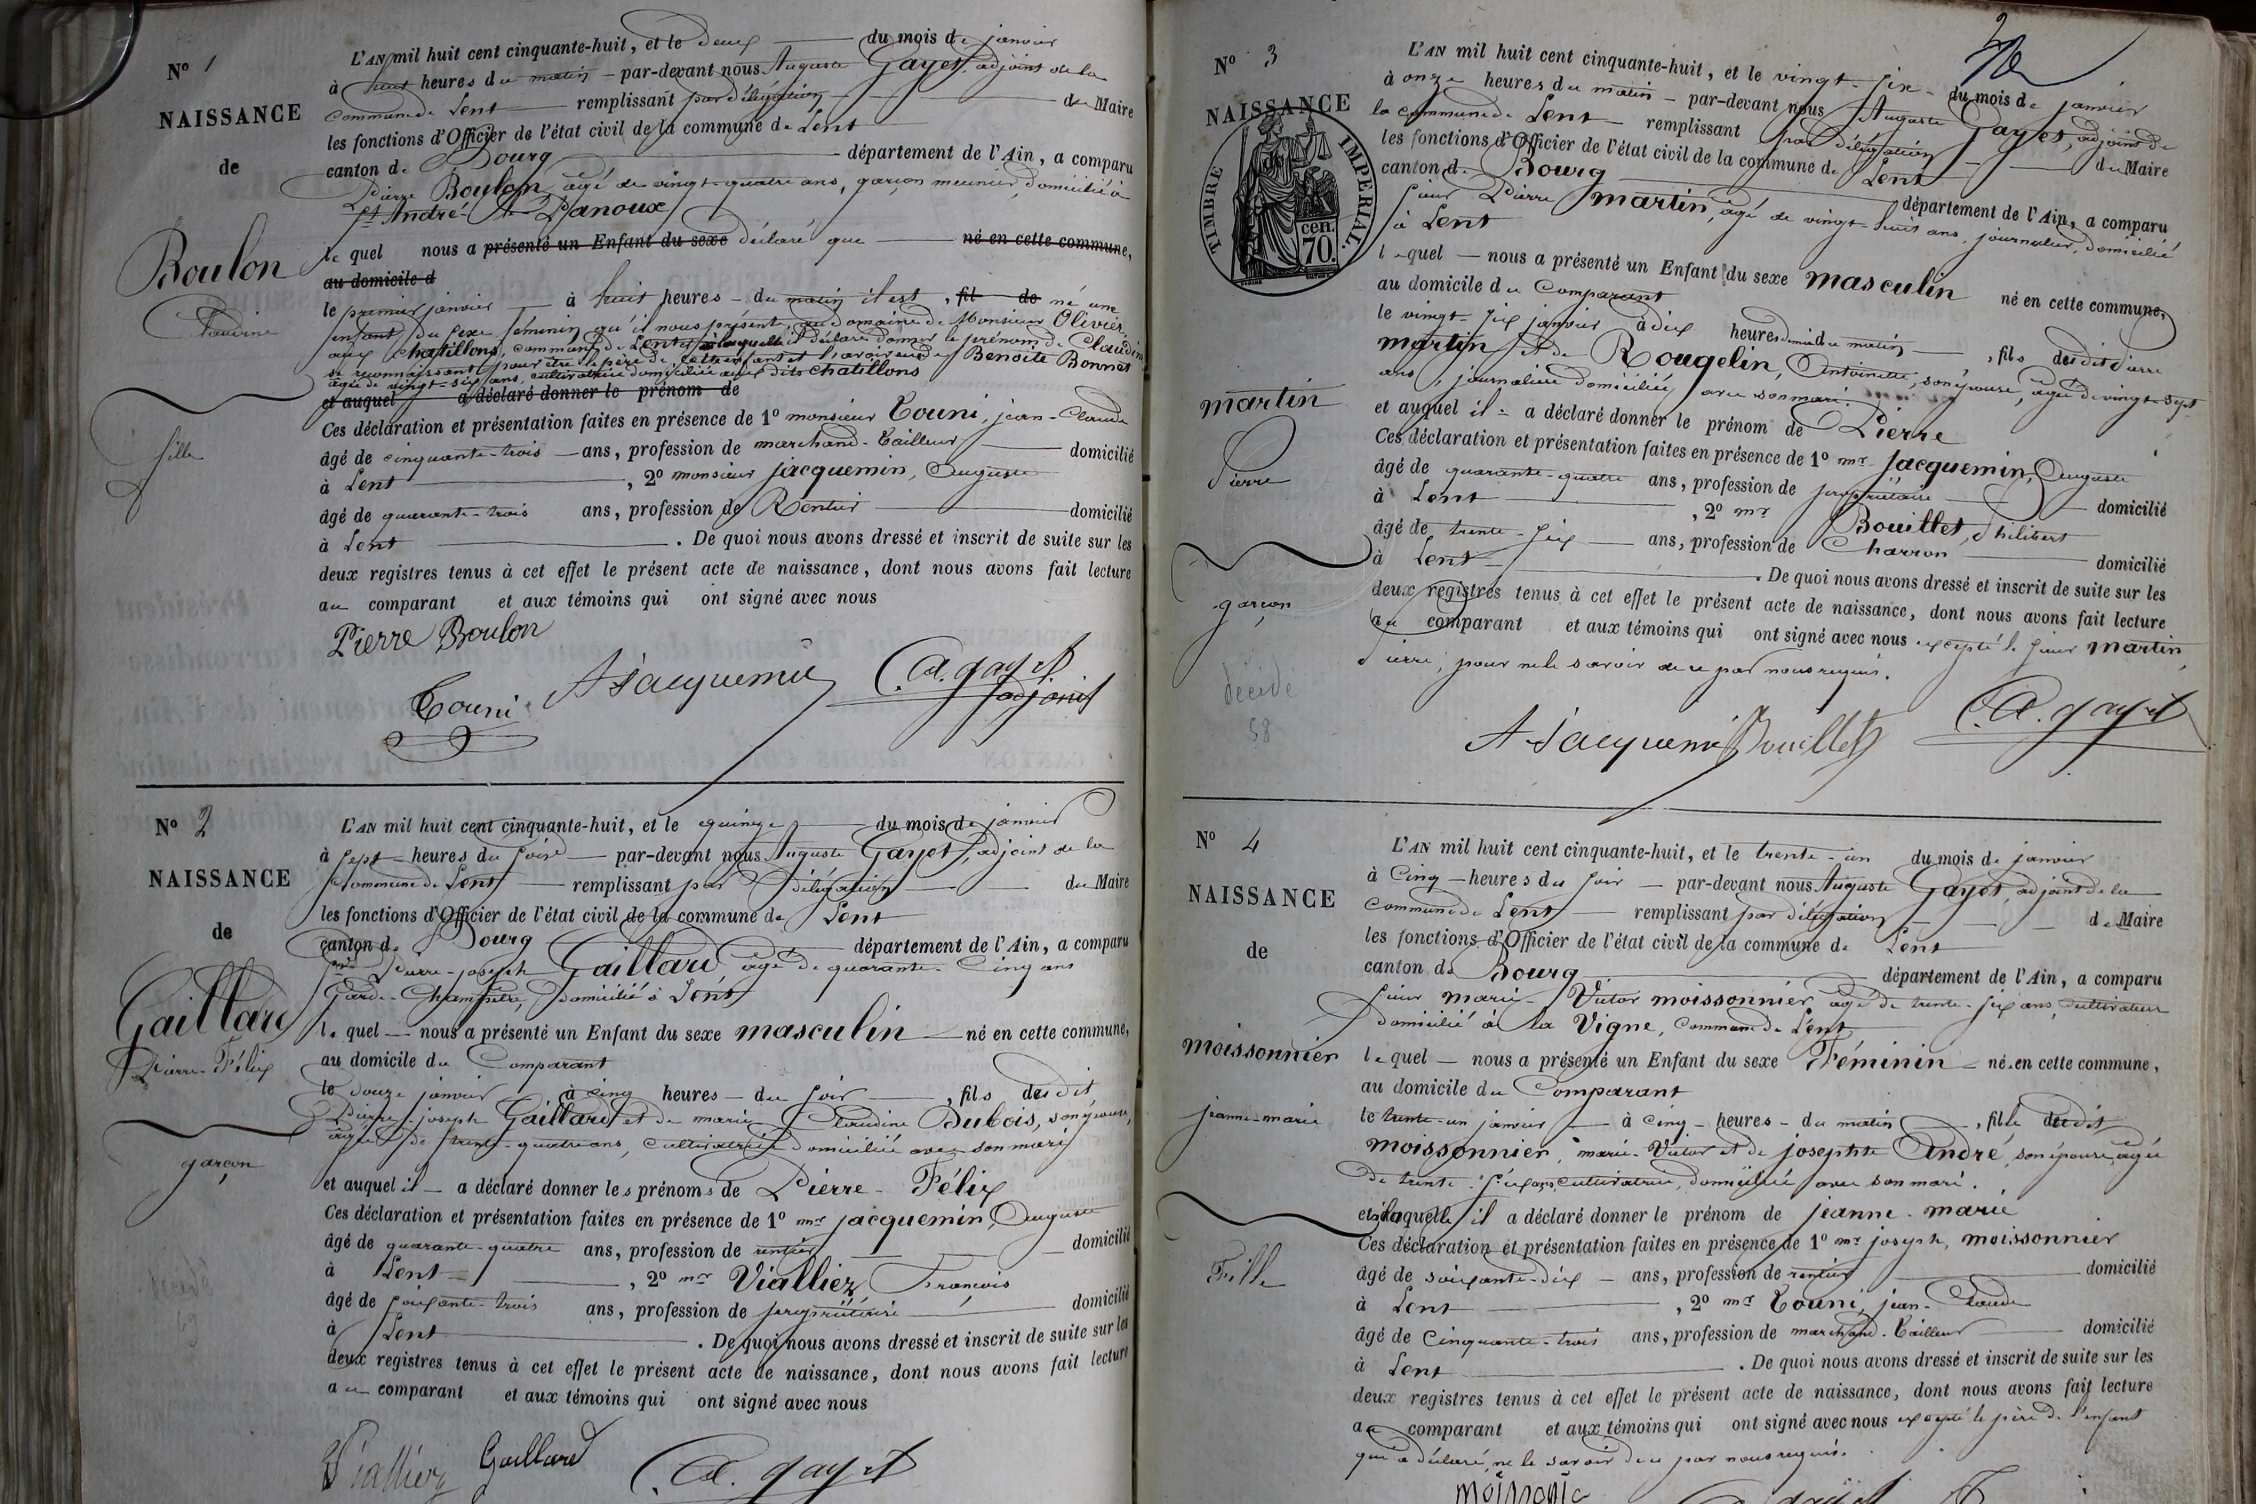 N° 1
NAISSANCE
de
Boulon
Claudine
fille
L'AN mil huit cent cinquante-huit, et le deux du mois de janvier
à huit heures du matin par-devant nous Auguste Gayet, adjoint de la
commune de Lent remplissant par délégation du Maire
les fonctions d'Officier de l'état civil de la commune de Lent
canton de Bourg département de l'Ain, a comparu
Pierre Boulon, âgé de vingt-quatre ans, garçon meunier, domicilié à
St André Panoux
le quel nous a présenté un Enfant du sexe déclaré que né en cette commune,
au domicile d
le premier janvier à huit heures du matin il est, fil de né une
enfant du sexe féminin qu'il nous présent, au domaine de Monsieur Olivier
aux chatillons, commune de Lent et à laquelle il déclare donner le prénom de Claudine
se reconnaissant pour être le père de cette enfant et l'avoir eue de Benoite Bonnet
âgée de vingt-six ans, cultivatrice domiciliée aux dits chatillons
et auquel a déclaré donner le prénom de
Ces déclaration et présentation faites en présence de 1° monsieur Touni, jean-Claude
âgé de cinquante-trois ans, profession de marchand-tailleur domicilié
à Lent , 2° monsieur jacquemin, Auguste
âgé de quarante-trois ans, profession de Rentier domicilié
à Lent . De quoi nous avons dressé et inscrit de suite sur les
deux registres tenus à cet effet le présent acte de naissance, dont nous avons fait lecture
au comparant et aux témoins qui ont signé avec nous
Pierre Boulon
Touni A Jacquemin A. gayet
adjoint
N° 2
NAISSANCE
de
Gaillard
Pierre-Félix
garçon
L'AN mil huit cent cinquante-huit, et le quinze du mois de janvier
à sept heures du soir par-devant nous Auguste Gayet, adjoint de la
commune de Lent remplissant par délégation du Maire
les fonctions d'Officier de l'état civil de la commune de Lent
canton de Bourg département de l'Ain, a comparu
Pierre-joseph Gaillard, âgé de quarante-Cinq ans
Garde-Champêtre, domicilié à Lent
le quel nous a présenté un Enfant du sexe masculin né en cette commune,
au domicile du Comparant
le douze janvier à cinq heures du soir , fils dudit
Pierre-joseph Gaillard et de marie Claudine Dubois, son épouse,
âgée de trente-quatre ans, cultivatrice domiciliée avec son mari
et auquel il a déclaré donner les prénoms de Pierre-Félix
Ces déclaration et présentation faites en présence de 1° mr jacquemin, Auguste
âgé de quarante-quatre ans, profession de rentier domicilié
à Lent , 2° mr Viallier, François
âgé de soixante-trois ans, profession de propriétaire domicilié
à Lent . De quoi nous avons dressé et inscrit de suite sur les
deux registres tenus à cet effet le présent acte de naissance, dont nous avons fait lecture
au comparant et aux témoins qui ont signé avec nous
Viallier Gaillard A. gayet
2
N° 3
NAISSANCE
de
TIMBRE IMPERIAL.
70 cen.
martin
Pierre
garçon
décédé
58
L'AN mil huit cent cinquante-huit, et le vingt-six du mois de janvier
à onze heures du matin par-devant nous Auguste Gayet, adjoint de
la commune de Lent remplissant par délégation du Maire
les fonctions d'Officier de l'état civil de la commune de Lent
canton de Bourg département de l'Ain, a comparu
sieur Pierre martin, âgé de vingt-huit ans, journalier, domicilié
à Lent
le quel nous a présenté un Enfant du sexe masculin né en cette commune,
au domicile du Comparant
le vingt-six janvier à dix heures demi du matin , fils dudit Pierre
martin et de Rougelin, Antoinette, son épouse, âgée de vingt-sept
ans, journalière domiciliée avec son mari.
et auquel il a déclaré donner le prénom de Pierre
Ces déclaration et présentation faites en présence de 1° mr Jacquemin, Auguste
âgé de quarante-quatre ans, profession de propriétaire domicilié
à Lent , 2° mr Bouillet, Philibert
âgé de trente-six ans, profession de Charron domicilié
à Lent . De quoi nous avons dressé et inscrit de suite sur les
deux registres tenus à cet effet le présent acte de naissance, dont nous avons fait lecture
au comparant et aux témoins qui ont signé avec nous excepté le sieur martin,
Pierre, pour ne le savoir de ce par nous requis.
A Jacquemin Bouillet A. gayet
N° 4
NAISSANCE
de
moissonnier
jeanne-marie
Fille
L'AN mil huit cent cinquante-huit, et le trente-un du mois de janvier
à Cinq heures du soir par-devant nous Auguste Gayet, adjoint de la
commune de Lent remplissant par délégation de Maire
les fonctions d'Officier de l'état civil de la commune de Lent
canton de Bourg département de l'Ain, a comparu
sieur marie-Victor moissonnier, âgé de trente-six ans, cultivateur
domicilié à la Vigne, commune de Lent
le quel nous a présenté un Enfant du sexe Féminin né en cette commune,
au domicile du Comparant
le trente-un janvier à cinq heures du matin , fille dudit
moissonnier, marie-Victor et de josephte André, son épouse, âgée
de trente-six ans, cultivatrice, domiciliée avec son mari.
et à laquelle il a déclaré donner le prénom de jeanne-marie
Ces déclaration et présentation faites en présence de 1° mr joseph, moissonnier
âgé de soixante-dix ans, profession de rentier domicilié
à Lent , 2° mr Touni, jean-Claude
âgé de Cinquante-trois ans, profession de marchand-tailleur domicilié
à Lent . De quoi nous avons dressé et inscrit de suite sur les
deux registres tenus à cet effet le présent acte de naissance, dont nous avons fait lecture
au comparant et aux témoins qui ont signé avec nous excepté le père de l'enfant
qui a déclaré ne le savoir de ce par nous requis.